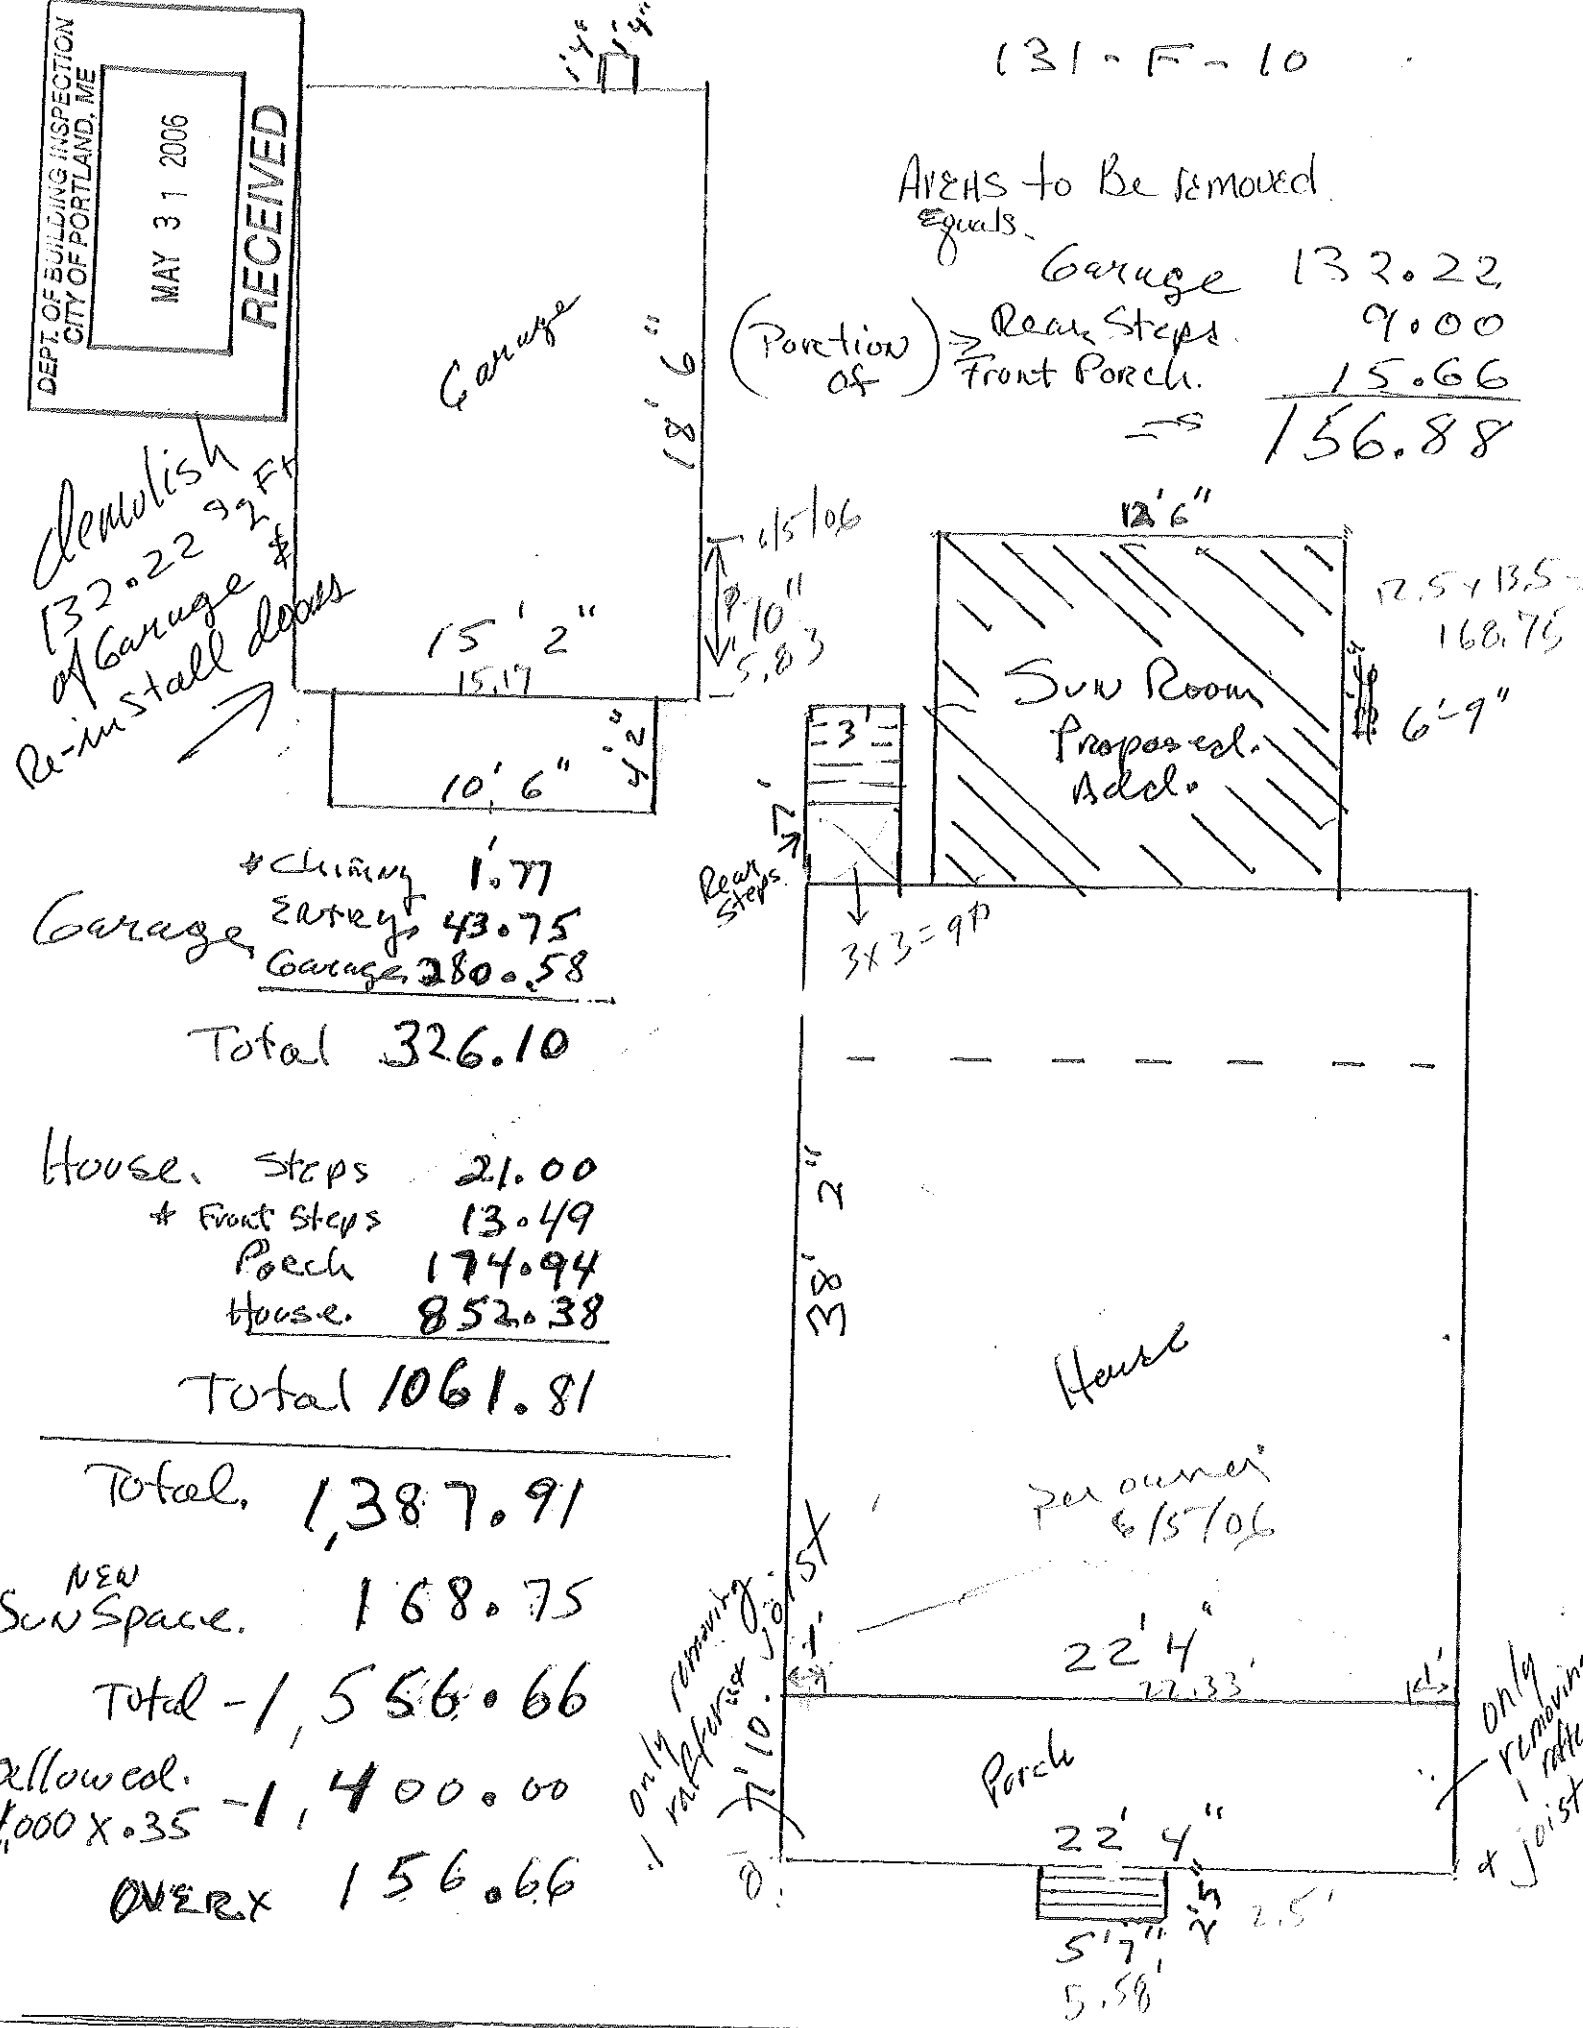 DEPT. OF BUILDING INSPECTION
CITY OF PORTLAND, ME
MAY 31 2006
RECEIVED
1'4" 1'4"
131-F-10
Areas to Be removed
Equals.
Garage 132.22
(Portion of) Rear Steps. 9.00
Front Porch. 15.66
156.88
Garage
18' 6"
demolish
132.22 sq Ft
of Garage &
Re-install doors
15' 2"
15.17
6/5/06
10"
5.83
10' 6"
4'2"
12'6"
12.5 x 13.5 =
168.75
Sun Room
Proposed.
Add.
6'-9"
3'
7'
Rear
Steps.
3x3=9
Garage
* Chimny 1.77
Entry 43.75
Garage 280.58
Total 326.10
House. Steps 21.00
* Front Steps 13.49
Porch 174.94
House. 852.38
Total 1061.81
Total. 1,387.91
NEW
Sun Space. 168.75
Total - 1,556.66
allowed.
4,000 x .35 - 1,400.00
OVER x 156.66
38' 2"
House
per owner
6/5/06
1'
22' 4"
22.33'
1'
only removing
1 rafter &
joist
7' 10"
Porch
22' 4"
only
removing
1
x joist
2'5"
2.5'
5'7"
5.58'